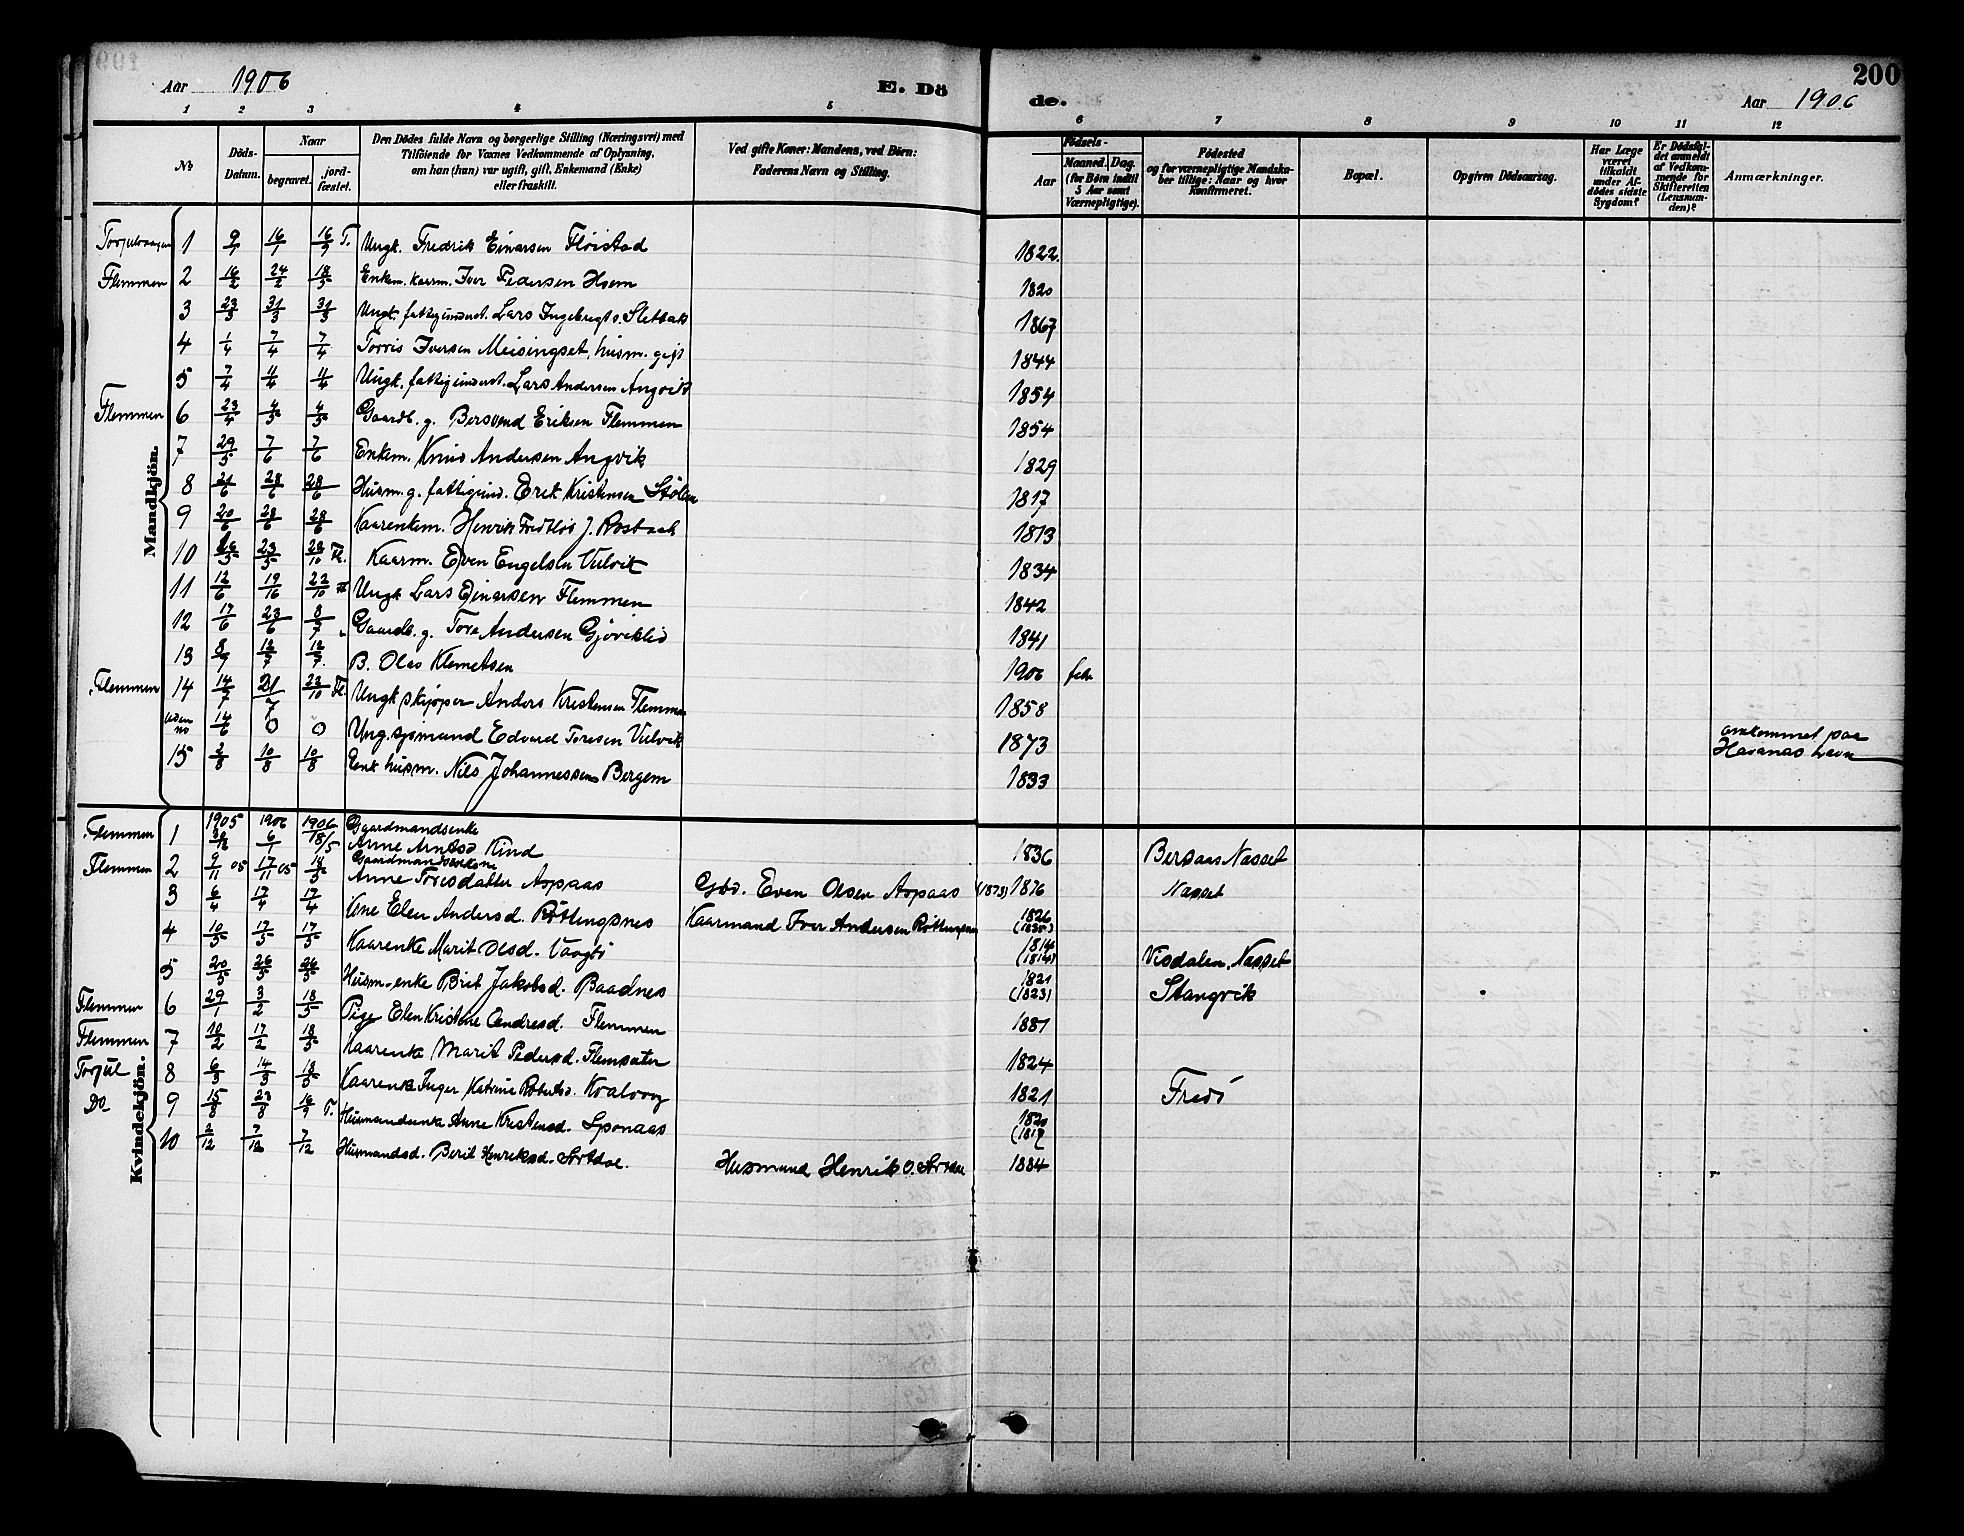 Aar 1906
E. Dö
de.
Aar 1906
200
1 2 3 4 5 6 7 8 9 10 11 12
№
Döds-Datum.
Naar
begravet.
jordfæstet.
Den Dödes fulde Navn og borgerlige Stilling (Næringsvei) med
Tilföiende for Voxnes Vedkommende af Oplysning,
om han (hun) var ugift, gift, Enkemand (Enke)
eller fraskilt.
Ved gifte Koner: Mandens, ved Börn:
Faderens Navn og Stilling.
Födsels-
Aar
Maaned. Dag.
(for Börn indtil
5 Aar samt
Værnepligtige).
Födested
og for værnepligtige Mandska-
ber tillige: Naar og hvor
Konfirmeret.
Bopæl.
Opgiven Dödsaarsag.
Har Læge
været
tilkaldt
under Af-
dödes sidste
Sygdom?
Er Dödsfal-
det anmeldt
af Vedkom-
mende for
Skifteretten
(Lensman-
den)?
Anmærkninger.
Mandkjön.
1 9/1 16/1 16/9 T. Ungk. Fredrik Einarsen Flöistad 1822
Flemmen 2 16/2 24/2 18/5 Enkem. kaarm. Iver Pedersen Hoem 1820
3 23/3 31/3 31/3 Ungk. Lars Ingebrigts. Sletbak 1867
4 1/4 7/4 7/4 Torris Iversen Meisingset, husm. gift 1844
5 7/4 11/4 11/4 Ungk. Lars Andersen Angvik 1854
Flemmen 6 23/4 4/5 4/5 Gaardb. g. Bersvend Eriksen Flemmen 1854
7 29/5 7/6 7/6 Enkem. Knud Andersen Angvik 1829
8 21/6 28/6 28/6 Husm. g. Erik Kristensen Stölen 1817
9 20/6 28/6 28/6 Kaarenkem. Henrik J. Rosbach 1813
10 23/5 22/10 Fl. Kaarm. Even Engelsen Vulvik 1834
11 12/6 19/16 22/10 Fl Ungk Lars Einarsen Flemmen 1842
12 17/6 23/6 8/7 Gaardb. g. Tore Andersen Gjöviklid 1841
13 8/7 12/7 12/7. B. Olas Klemetsen 1906 feb
Flemmen 14 14/7 21/7 22/10 Fl. Ungk skipper Anders Kristensen Flemmen 1858
uden no 14/6 0 0 Ung. sjömand Edvard Toresen Vulvik 1873 omkommet paa
Havanas havn
15 2/8 10/8 10/8 Enk husm. Nils Johannessen Bergem 1833
Kvindekjön.
1905 1906 1906 Gaardmandsenke
Flemmen 1 6/1 18/5 Anne Arntsd Kind 1836 Bersaas Nesset
Gaardmandskone
Flemmen 2 9/11 05 17/11 05 18/5 Anne Toresdatter Aspaas Gbr. Even Olsen Aspaas (1873) 1876 Nesset
3 6/4 17/4 17/4 Kone Elen Andersd. Röttingsnes Kaarmand Iver Andersen Röttingsnes 1826
(1835)
4 10/5 17/5 17/5 Kaarenke Marit Olsd. Vaagbö 1814
(1814) Visdalen, Nesset
5 20/5 26/5 26/5 Husm.enke Brit Jakobsd. Baadnes 1821
(1823) Stangvik
Flemmen 6 29/1 3/2 18/5 Pige Elen Kristine Andresd. Flemmen 1881
Flemmen 7 10/2 17/2 18/5 Kaarenke Marit Pedersd. Flemsæter 1824
Torjul 8 6/3 14/3 18/5 Kaarenke Inger Katrine Robertsd. Kvalvaag 1821 Fredö
Do 9 15/8 23/8 16/9 T. Husmandsenke Anne Kristensd. Sponaas 1820
(1817
10 2/12 7/12 7/12 Husmandsd. Berit Henriksd. Sortdal. Husmand Henrik O. Sortdal 1884